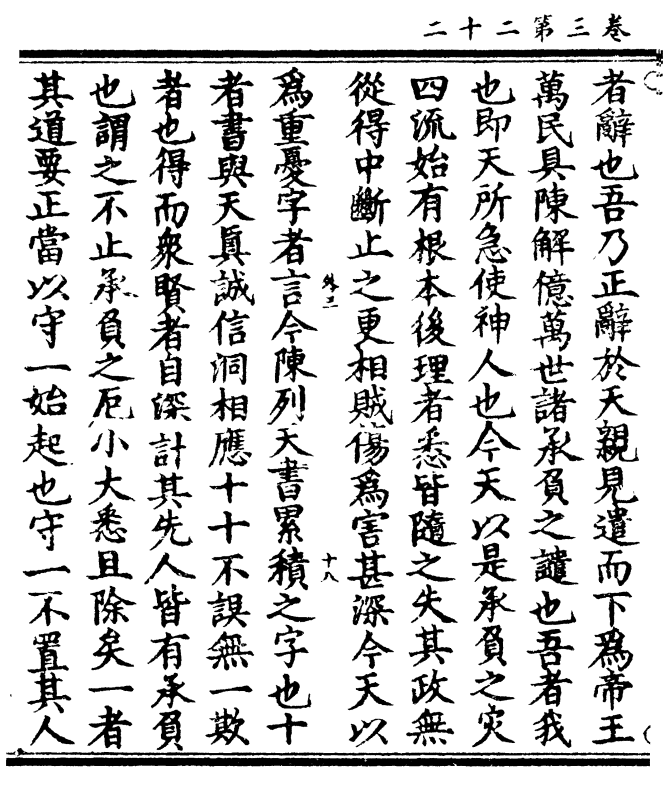 卷三第二十二
者辭也吾乃正辭於天親見遣而下爲帝王
萬民具陳解億萬世諸承負之讁也吾者我
也即天所急使神人也今天以是承負之災
四流始有根本後理者悉皆隨之失其政無
從得中斷止之更相賊傷爲害甚深今天以
外三
十八
爲重憂字者言今陳列天書累積之字也十
者書與天眞誠信洞相應十十不誤無一欺
者也得而衆賢者自深計其先人皆有承負
也謂之不止承負之厄小大悉且除矣一者
其道要正當以守一始起也守一不置其人